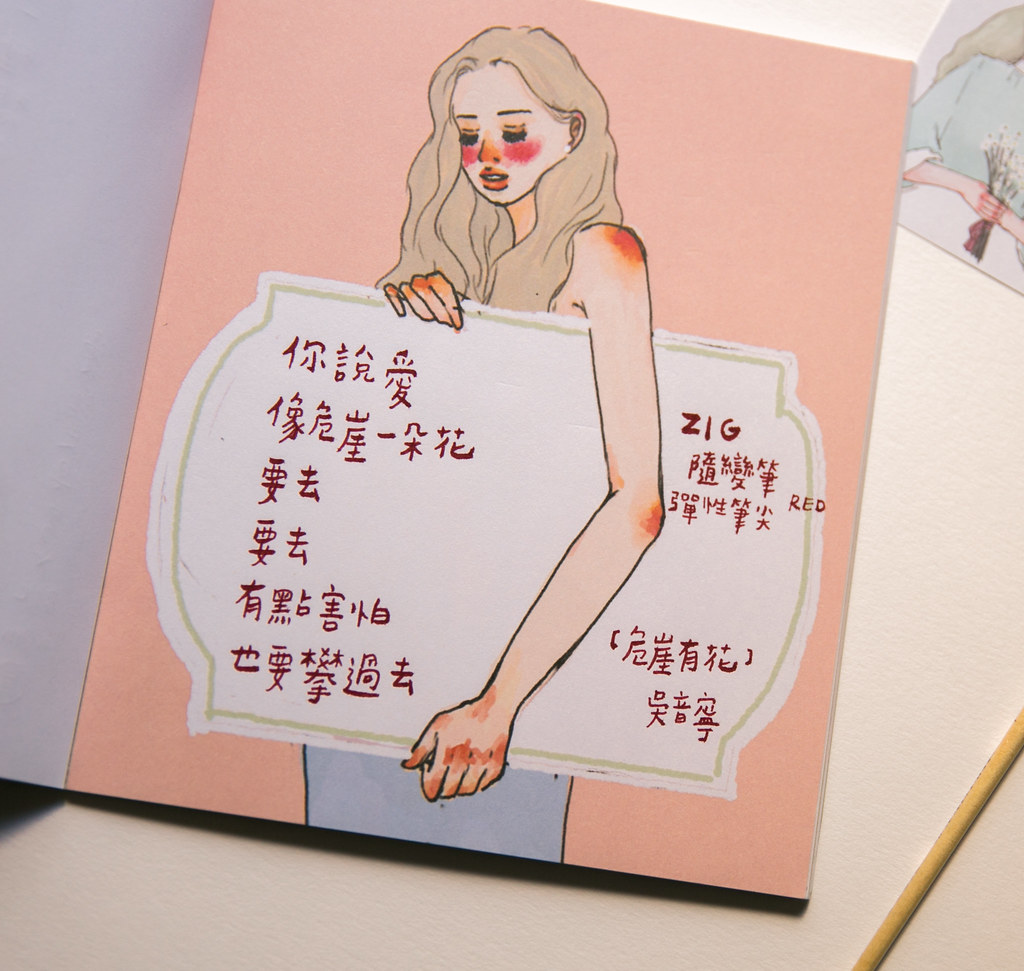 你說愛
像危崖一朵花
要去
要去
有點害怕
也要攀過去
ZIG
隨變筆
彈性筆尖 RED
〔危崖有花〕
吳音寧